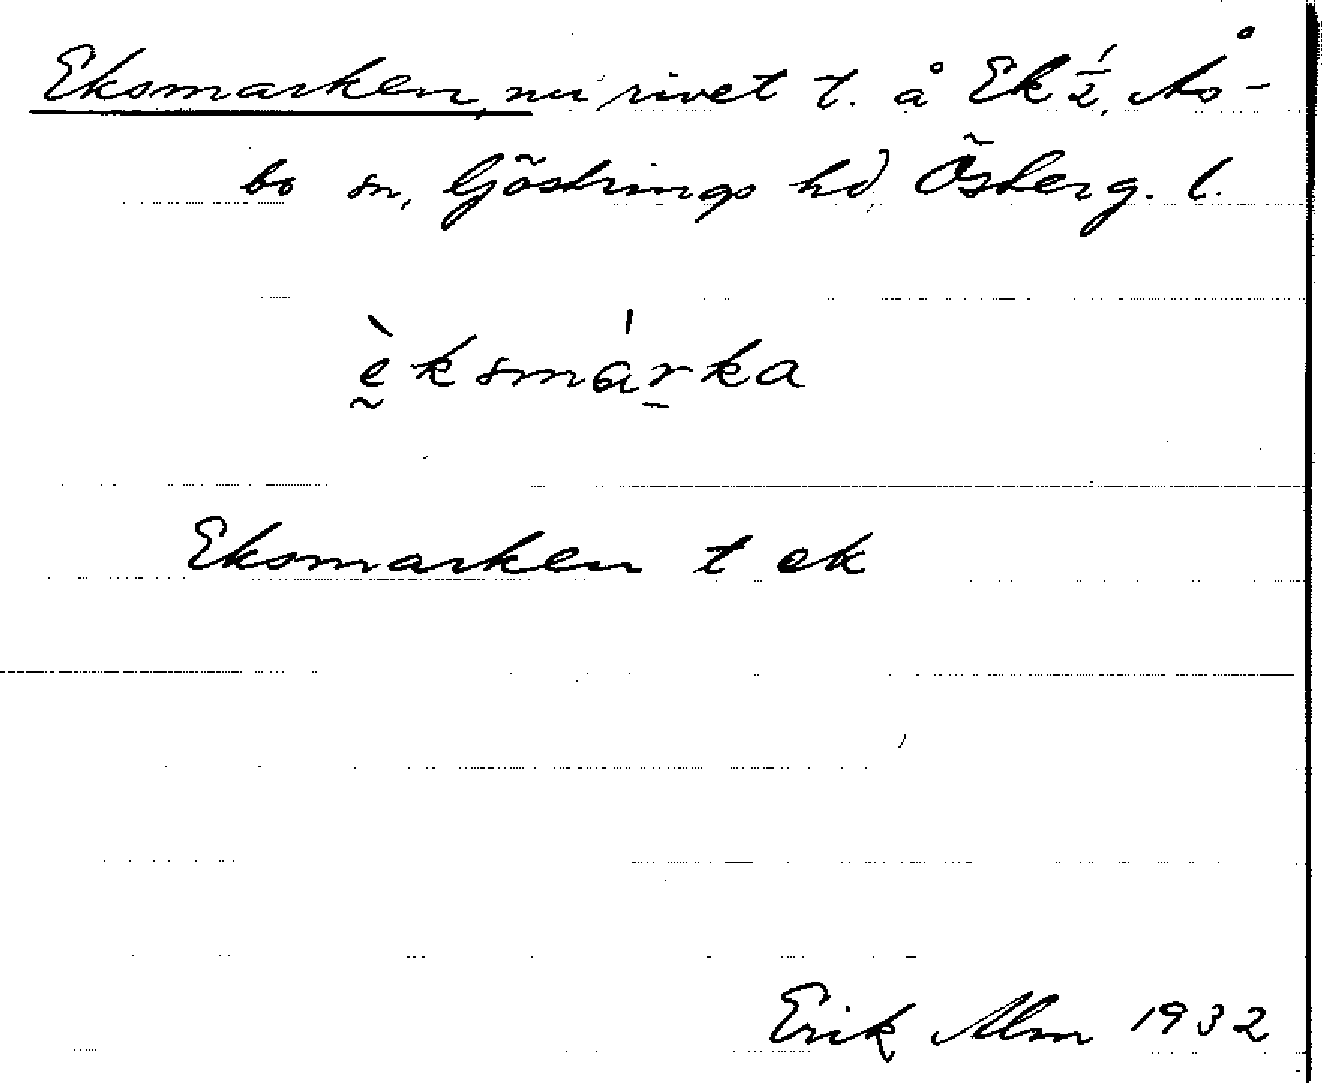 Eksmarken, nu rivet t. å Ek ½, Ås-
bo sn, Göstrings hd, Österg. l.
ḛ̀ksmár̠ka
Eksmarken t ek
Erik Alm 1932